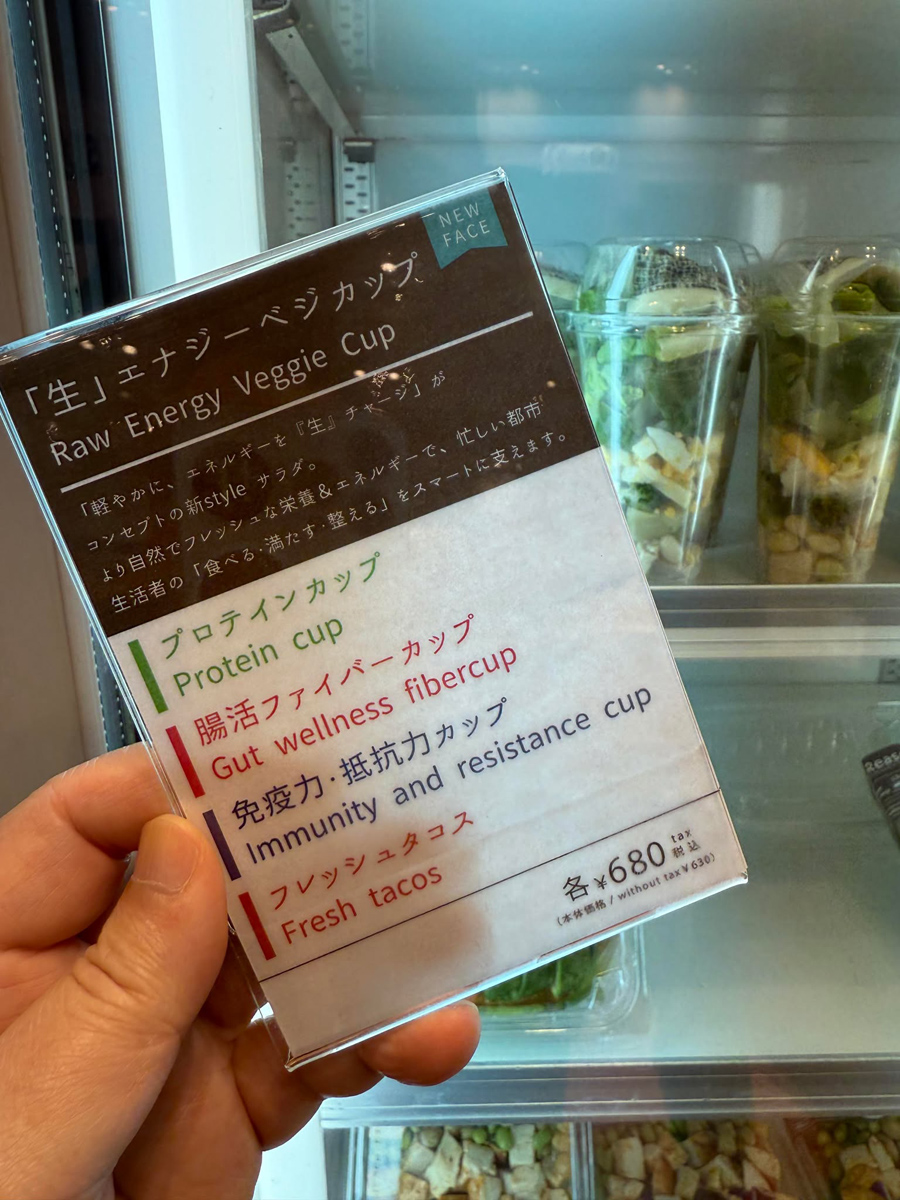 NEW
FACE
「生」エナジーベジカップ
Raw Energy Veggie Cup
「軽やかに、エネルギーを『生』チャージ」が
コンセプトの新style サラダ。
より自然でフレッシュな栄養&エネルギーで、忙しい都市
生活者の「食べる·満たす·整える」をスマートに支えます。
プロテインカップ
Protein cup
腸活ファイバーカップ
Gut wellness fibercup
免疫力·抵抗力カップ
Immunity and resistance cup
フレッシュタコス
Fresh tacos
各¥680 tax 税込
(本体価格 / without tax¥630)